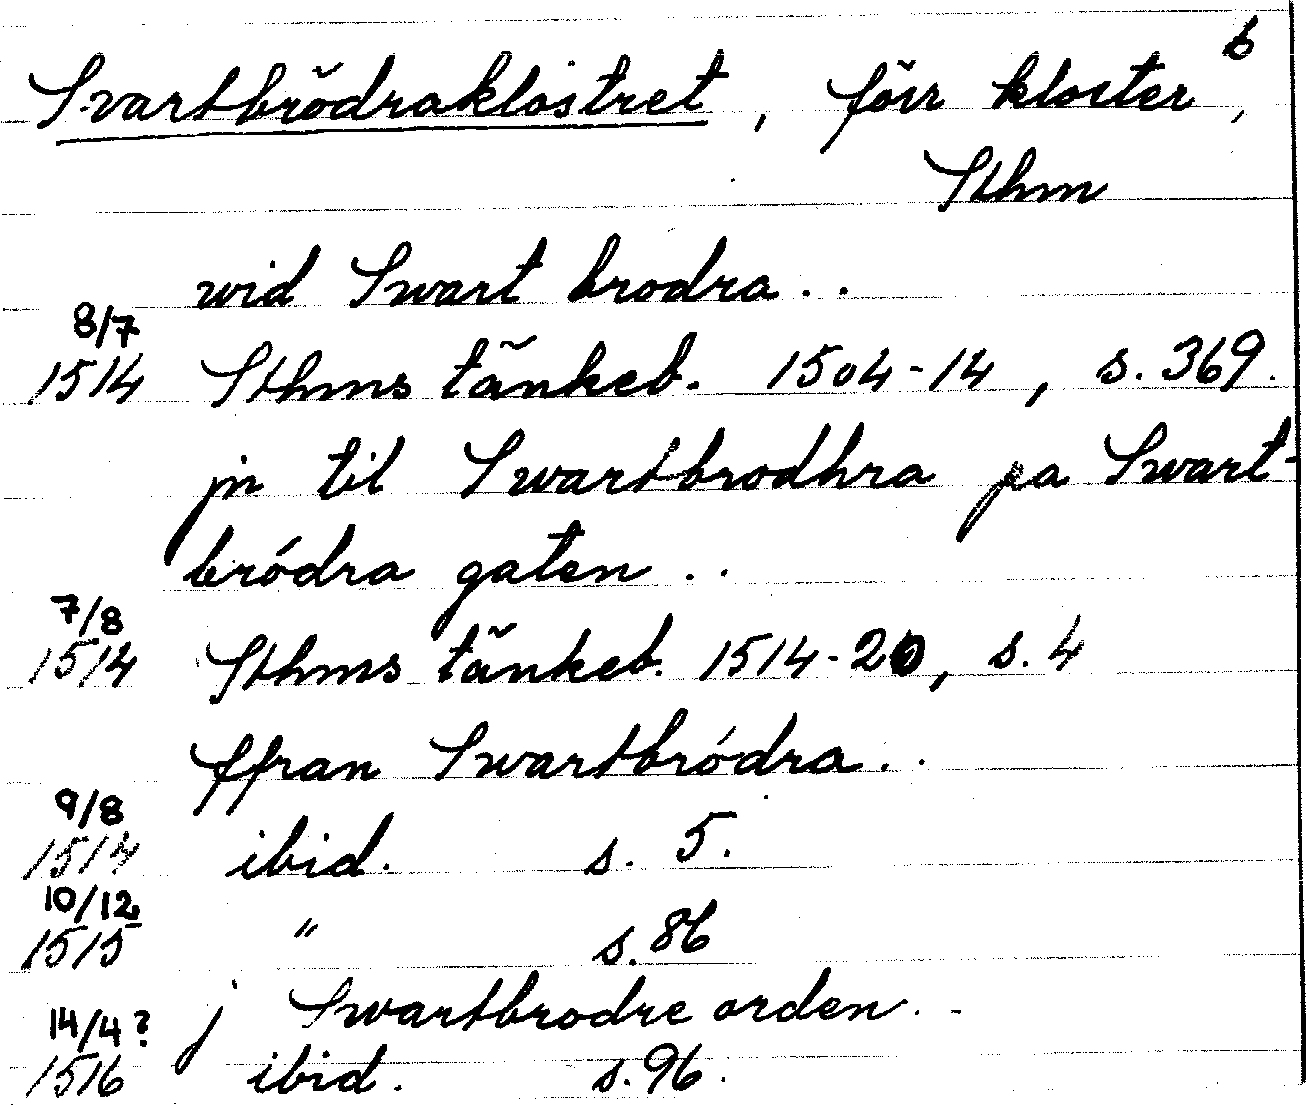 6
Svartbrödraklostret, förr kloster,
Sthm
wid Swart brodra..
8/7
1514 Sthms tänkeb. 1504-14, s. 369.
jn til Swartbrodhra pa Swart-
bródra gaten..
7/8
1514 Sthms tänkeb. 1514-20, s. 4
ffran Swartbródra..
9/8
1514 ibid. s. 5.
10/12
1515 " s. 86
j Swartbrodre orden..
14/4?
1516 ibid. s. 96.